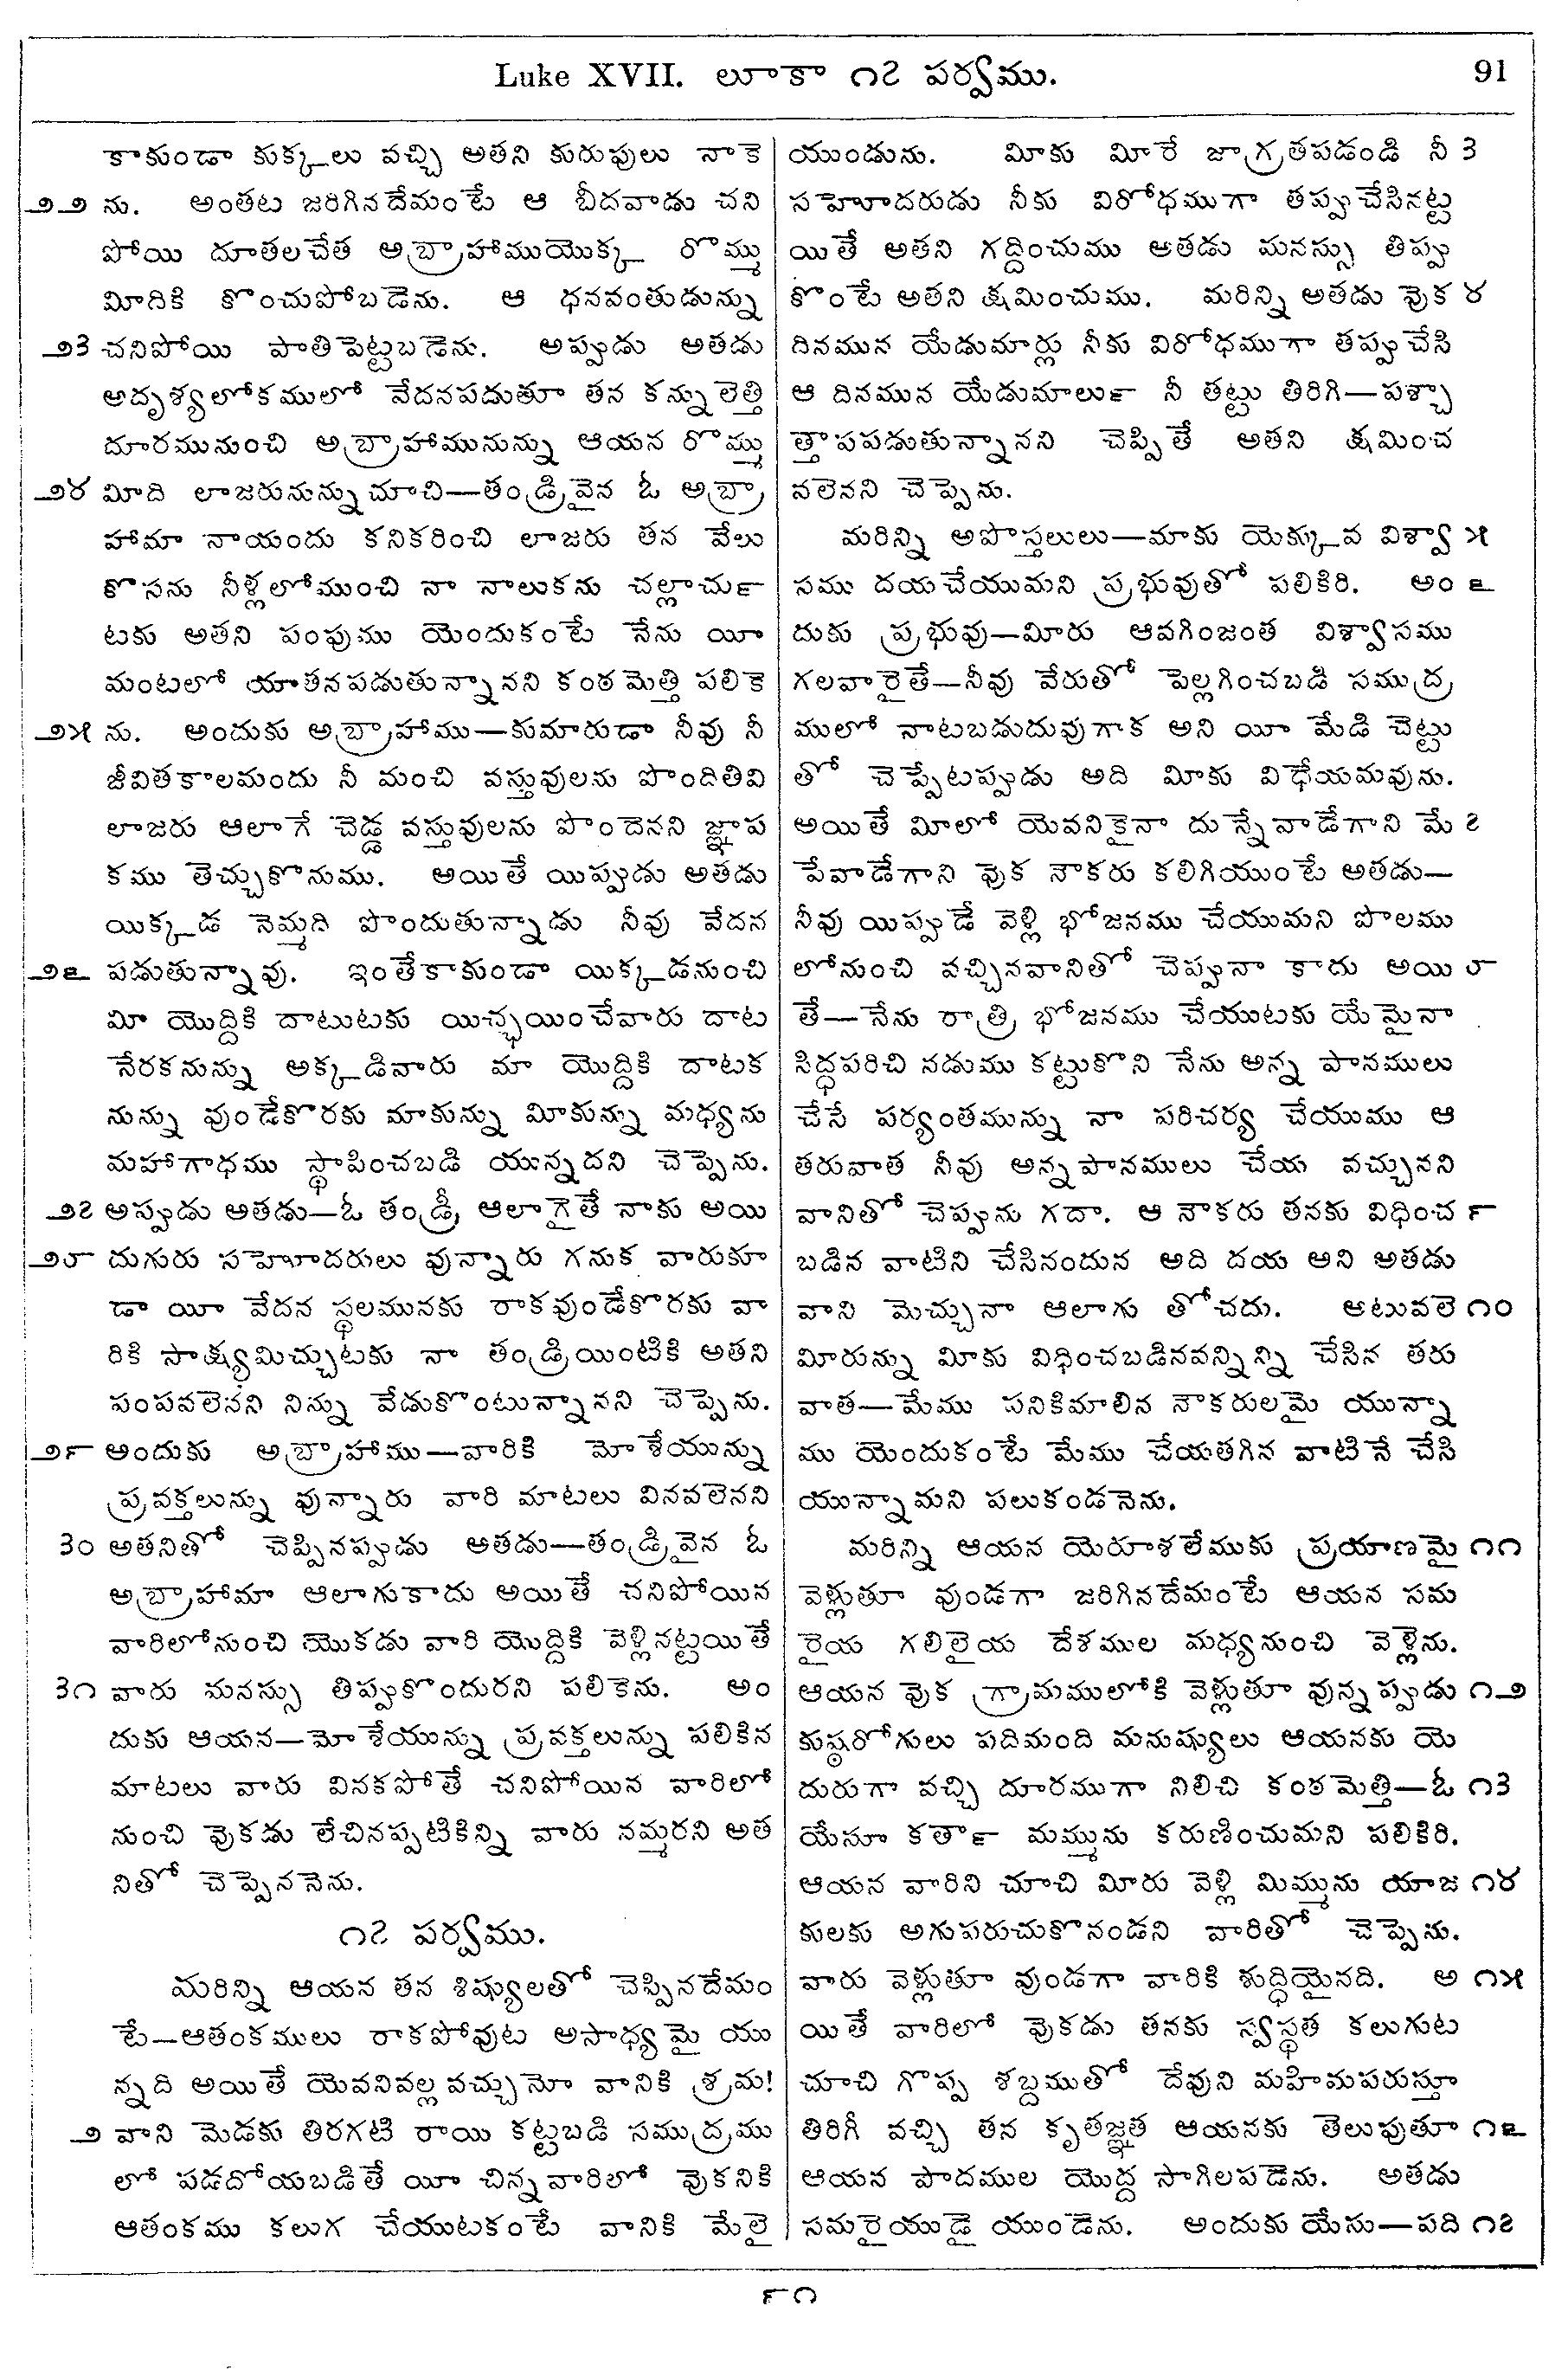 Luke XVII. లూకా ౧౭ పర్వము. 91
కాకుండా కుక్కలు వచ్చి అతని కురుపులు నాకె
౨౨ ను. అంతట జరిగినదేమంటే ఆ బీదవాడు చని
పోయి దూతలచేత అబ్రాహాముయొక్క రొమ్ము
మీదికి కొంచుపోబడెను. ఆ ధనవంతుడున్ను
౨౩ చనిపోయి పాతిపెట్టబడెను. అప్పుడు అతడు
అదృశ్యలోకములో వేదనపడుతూ తన కన్ను లెత్తి
దూరమునుంచి అబ్రాహామునున్ను ఆయన రొమ్ము
౨౪ మీది లాజరునున్ను చూచి—తండ్రివైన ఓ అబ్రా
హామా నాయందు కనికరించి లాజరు తన వేలు
కొసను నీళ్లలోముంచి నా నాలుకను చల్లాచు౯
టకు అతని పంపుము యెందుకంటే నేను యీ
మంటలో యాతనపడుతున్నానని కంఠమెత్తి పలికె
౨౫ ను. అందుకు అబ్రాహాము—కుమారుడా నీవు నీ
జీవితకాలమందు నీ మంచి వస్తువులను పొందితివి
లాజరు ఆలాగే చెడ్డ వస్తువులను పొందెనని జ్ఞాప
కము తెచ్చుకొనుము. అయితే యిప్పుడు అతడు
యిక్కడ నెమ్మది పొందుతున్నాడు నీవు వేదన
౨౬ పడుతున్నావు. ఇంతేకాకుండా యిక్కడనుంచి
మీ యొద్దికి దాటుటకు యిచ్ఛయించేవారు దాట
నేరకనున్ను అక్కడివారు మా యొద్దికి దాటక
నున్ను వుండేకొరకు మాకున్ను మీకున్ను మధ్యను
మహాగాధము స్థాపించబడి యున్నదని చెప్పెను.
౨౭ అప్పుడు అతడు—ఓ తండ్రీ ఆలాగైతే నాకు అయి
౨౮ దుగురు సహెూదరులు వున్నారు గనుక వారుకూ
డా యీ వేదన స్థలమునకు రాకవుండేకొరకు వా
రికి సాక్ష్యమిచ్చుటకు నా తండ్రియింటికి అతని
పంపవలెనని నిన్ను వేడుకొంటున్నానని చెప్పెను.
౨౯ అందుకు అబ్రాహాము—వారికి మోశేయున్ను
ప్రవక్తలున్ను వున్నారు వారి మాటలు వినవలెనని
౩౦ అతనితో చెప్పినప్పుడు అతడు—తండ్రివైన ఓ
అబ్రాహామా ఆలాగుకాదు అయితే చనిపోయిన
వారిలోనుంచి యొకడు వారి యొద్దికి వెళ్లినట్టయితే
౩౧ వారు మనస్సు తిప్పుకొందురని పలికెను. అం
దుకు ఆయన—మోశేయున్ను ప్రవక్తలున్ను పలికిన
మాటలు వారు వినకపోతే చనిపోయిన వారిలో
నుంచి వొకడు లేచినప్పటికిన్ని వారు నమ్మరని అత
నితో చెప్పెననెను.
౧౭ పర్వము.
మరిన్ని ఆయన తన శిష్యులతో చెప్పినదేమం
టే—ఆతంకములు రాకపోవుట అసాధ్యమై యు
న్నది అయితే యెవనివల్ల వచ్చునో వానికి శ్రమ!
౨ వాని మెడకు తిరగటి రాయి కట్టబడి సముద్రము
లో పడదోయబడితే యీ చిన్నవారిలో వొకనికి
ఆతంకము కలుగ చేయుటకంటే వానికి మేలై
యుండును. మీకు మీరే జాగ్రతపడండి నీ ౩
సహెూదరుడు నీకు విరోధముగా తప్పుచేసినట్ట
యితే అతని గద్దించుము అతడు మనస్సు తిప్పు
కొంటే అతని క్షమించుము. మరిన్ని అతడు వొక ౪
దినమున యేడుమార్లు నీకు విరోధముగా తప్పుచేసి
ఆ దినమున యేడుమాలు౯ నీ తట్టు తిరిగి—పశ్చా
త్తాపపడుతున్నానని చెప్పితే అతని క్షమించ
వలెనని చెప్పెను.
మరిన్ని అపొస్తలులు—మాకు యెక్కువ విశ్వా ౫
సము దయచేయుమని ప్రభువుతో పలికిరి. అం ౬
దుకు ప్రభువు—మీరు ఆవగింజంత విశ్వాసము
గలవారైతే—నీవు వేరుతో పెల్లగించబడి సముద్ర
ములో నాటబడుదువుగాక అని యీ మేడి చెట్టు
తో చెప్పేటప్పుడు అది మీకు విధేయమవును.
అయితే మీలో యెవనికైనా దున్నేవాడేగాని మే ౭
పేవాడేగాని వొక నౌకరు కలిగియుంటే అతడు—
నీవు యిప్పుడే వెళ్లి భోజనము చేయుమని పొలము
లోనుంచి వచ్చినవానితో చెప్పునా కాదు అయి ౮
తే—నేను రాత్రి భోజనము చేయుటకు యేమైనా
సిద్ధపరిచి నడుము కట్టుకొని నేను అన్న పానములు
చేసే పర్యంతమున్ను నా పరిచర్య చేయుము ఆ
తరువాత నీవు అన్నపానములు చేయ వచ్చునని
వానితో చెప్పును గదా. ఆ నౌకరు తనకు విధించ ౯
బడిన వాటిని చేసినందున అది దయ అని అతడు
వాని మెచ్చునా ఆలాగు తోచదు. అటువలె ౧౦
మీరున్ను మీకు విధించబడినవన్నిన్ని చేసిన తరు
వాత—మేము పనికిమాలిన నౌకరులమై యున్నా
ము యెందుకంటే మేము చేయతగిన వాటినే చేసి
యున్నామని పలుకండనెను.
మరిన్ని ఆయన యెరూశలేముకు ప్రయాణమై ౧౧
వెళ్లుతూ వుండగా జరిగినదేమంటే ఆయన సమ
రైయ గలిలైయ దేశముల మధ్యనుంచి వెళ్లెను.
ఆయన వొక గ్రామములోకి వెళ్లుతూ వున్నప్పుడు ౧౨
కుష్ఠరోగులు పదిమంది మనుష్యులు ఆయనకు యె
దురుగా వచ్చి దూరముగా నిలిచి కంఠమెత్తి—ఓ ౧౩
యేసూ కతా౯ మమ్మును కరుణించుమని పలికిరి.
ఆయన వారిని చూచి మీరు వెళ్లి మిమ్మును యాజ ౧౪
కులకు అగుపరుచుకొనండని వారితో చెప్పెను.
వారు వెళ్లుతూ వుండగా వారికి శుద్ధియైనది. అ ౧౫
యితే వారిలో వొకడు తనకు స్వస్థత కలుగుట
చూచి గొప్ప శబ్దముతో దేవుని మహిమపరుస్తూ
తిరిగీ వచ్చి తన కృతజ్ఞత ఆయనకు తెలుపుతూ ౧౬
ఆయన పాదముల యొద్ద సాగిలపడెను. అతడు
సమరైయుడై యుండెను. అందుకు యేసు—పది ౧౭
౯౧